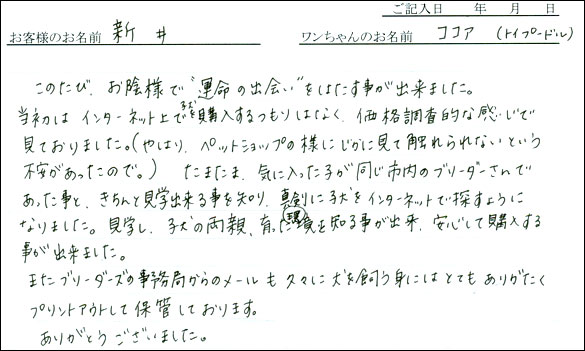 ご記入日　年　月　日
お客様のお名前 新井　ワンちゃんのお名前 ココア (トイプードル)
このたび、お陰様で"運命の出会い"をはたす事が出来ました。
当初は インターネット上で子犬を購入するつもりはなく、価格調査的な感じで
見ておりました。(やはり、ペットショップの様にじかに見て触れられないという
不安があったので。) たまたま、気に入った子が同じ市内のブリーダーさんで
あった事と、きちんと見学出来る事を知り、真剣に子犬をインターネットで探すように
なりました。見学し、子犬の両親、育った環境を知る事が出来、安心して購入する
事が出来ました。
またブリーダーズの事務局からのメールも 久々に犬を飼う身にはとてもありがたく
プリントアウトして保管しております。
ありがとうございました。